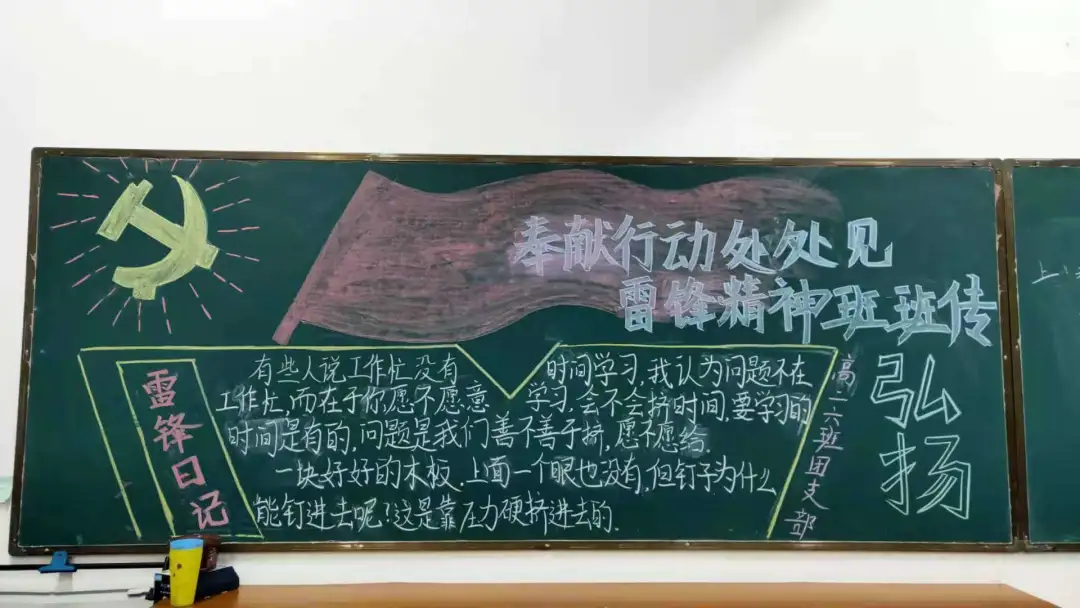 奉献行动处处见
雷锋精神班班传
弘扬
雷锋日记
有些人说工作忙没有时间学习,我认为问题不在
工作忙,而在于你愿不愿意学习,会不会挤时间,要学习的
时间是有的,问题是我们善不善于挤,愿不愿给.
一块好好的木板.上面一个眼也没有,但钉子为什么
能钉进去呢?这是靠压力硬挤进去的.
高二六班团支部